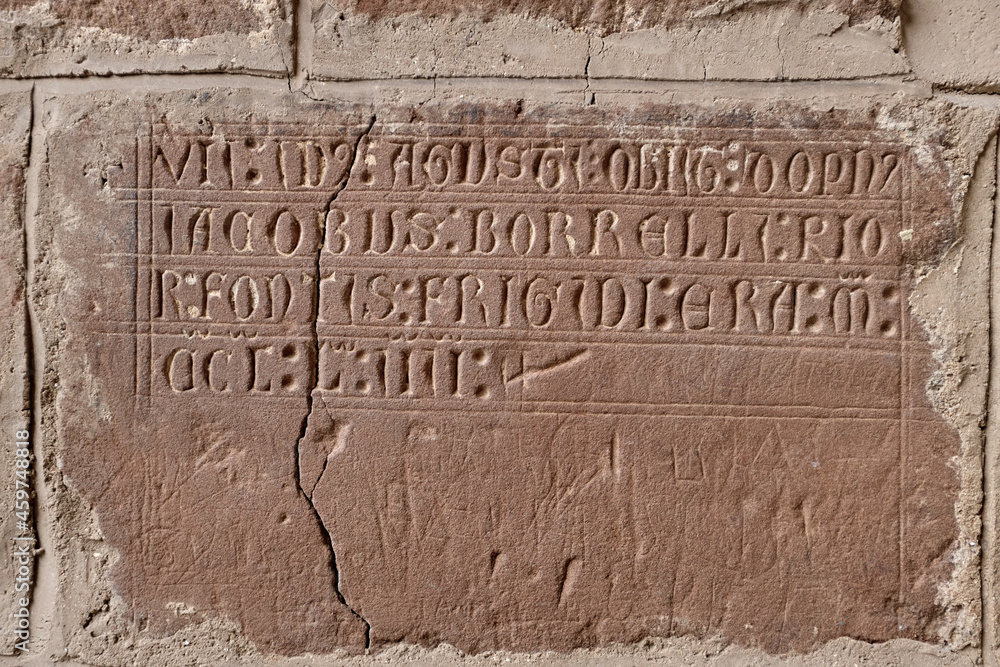 VII : IDVS : AGUSTI : OBIIT : DOPNVS
IACOBUS : BORRELLI : PRIO
R : FONTIS : FRIGIDI : ERA : M :
CCL : L : IIII :
Adobe Stock | #459748818